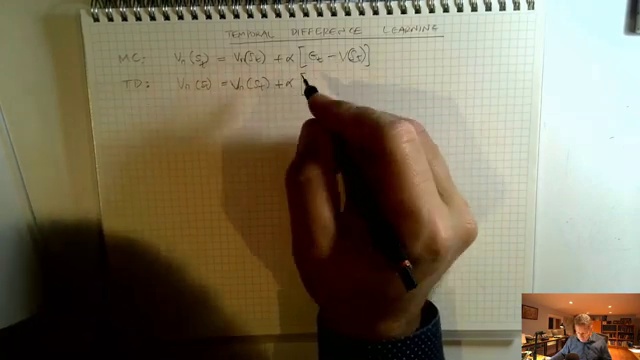 TEMPORAL DIFFERENCE LEARNING
MC: Vπ(St) = Vπ(St) + α [Gt − V(St)]
TD: Vπ(St) = Vπ(St) + α [